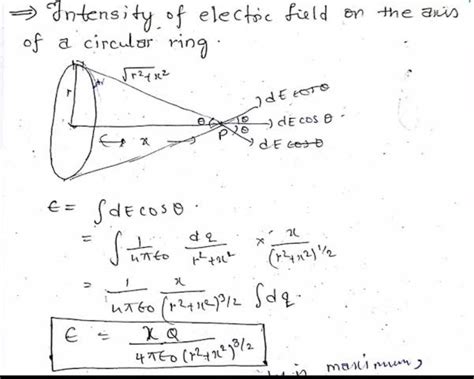 ⇒ Intensity of electric field on the axis
of a circular ring.
√r²+x²
r
dE cosθ
θ θ → dE cosθ.
← x → P θ
dE cosθ
E = ∫dE cosθ.
= ∫ 1/4πε0 dq/r²+x² × x/(r²+x²)^1/2
= 1/4πε0 x/(r²+x²)^3/2 ∫dq.
E = xQ/4πε0 (r²+x²)^3/2
maximum,